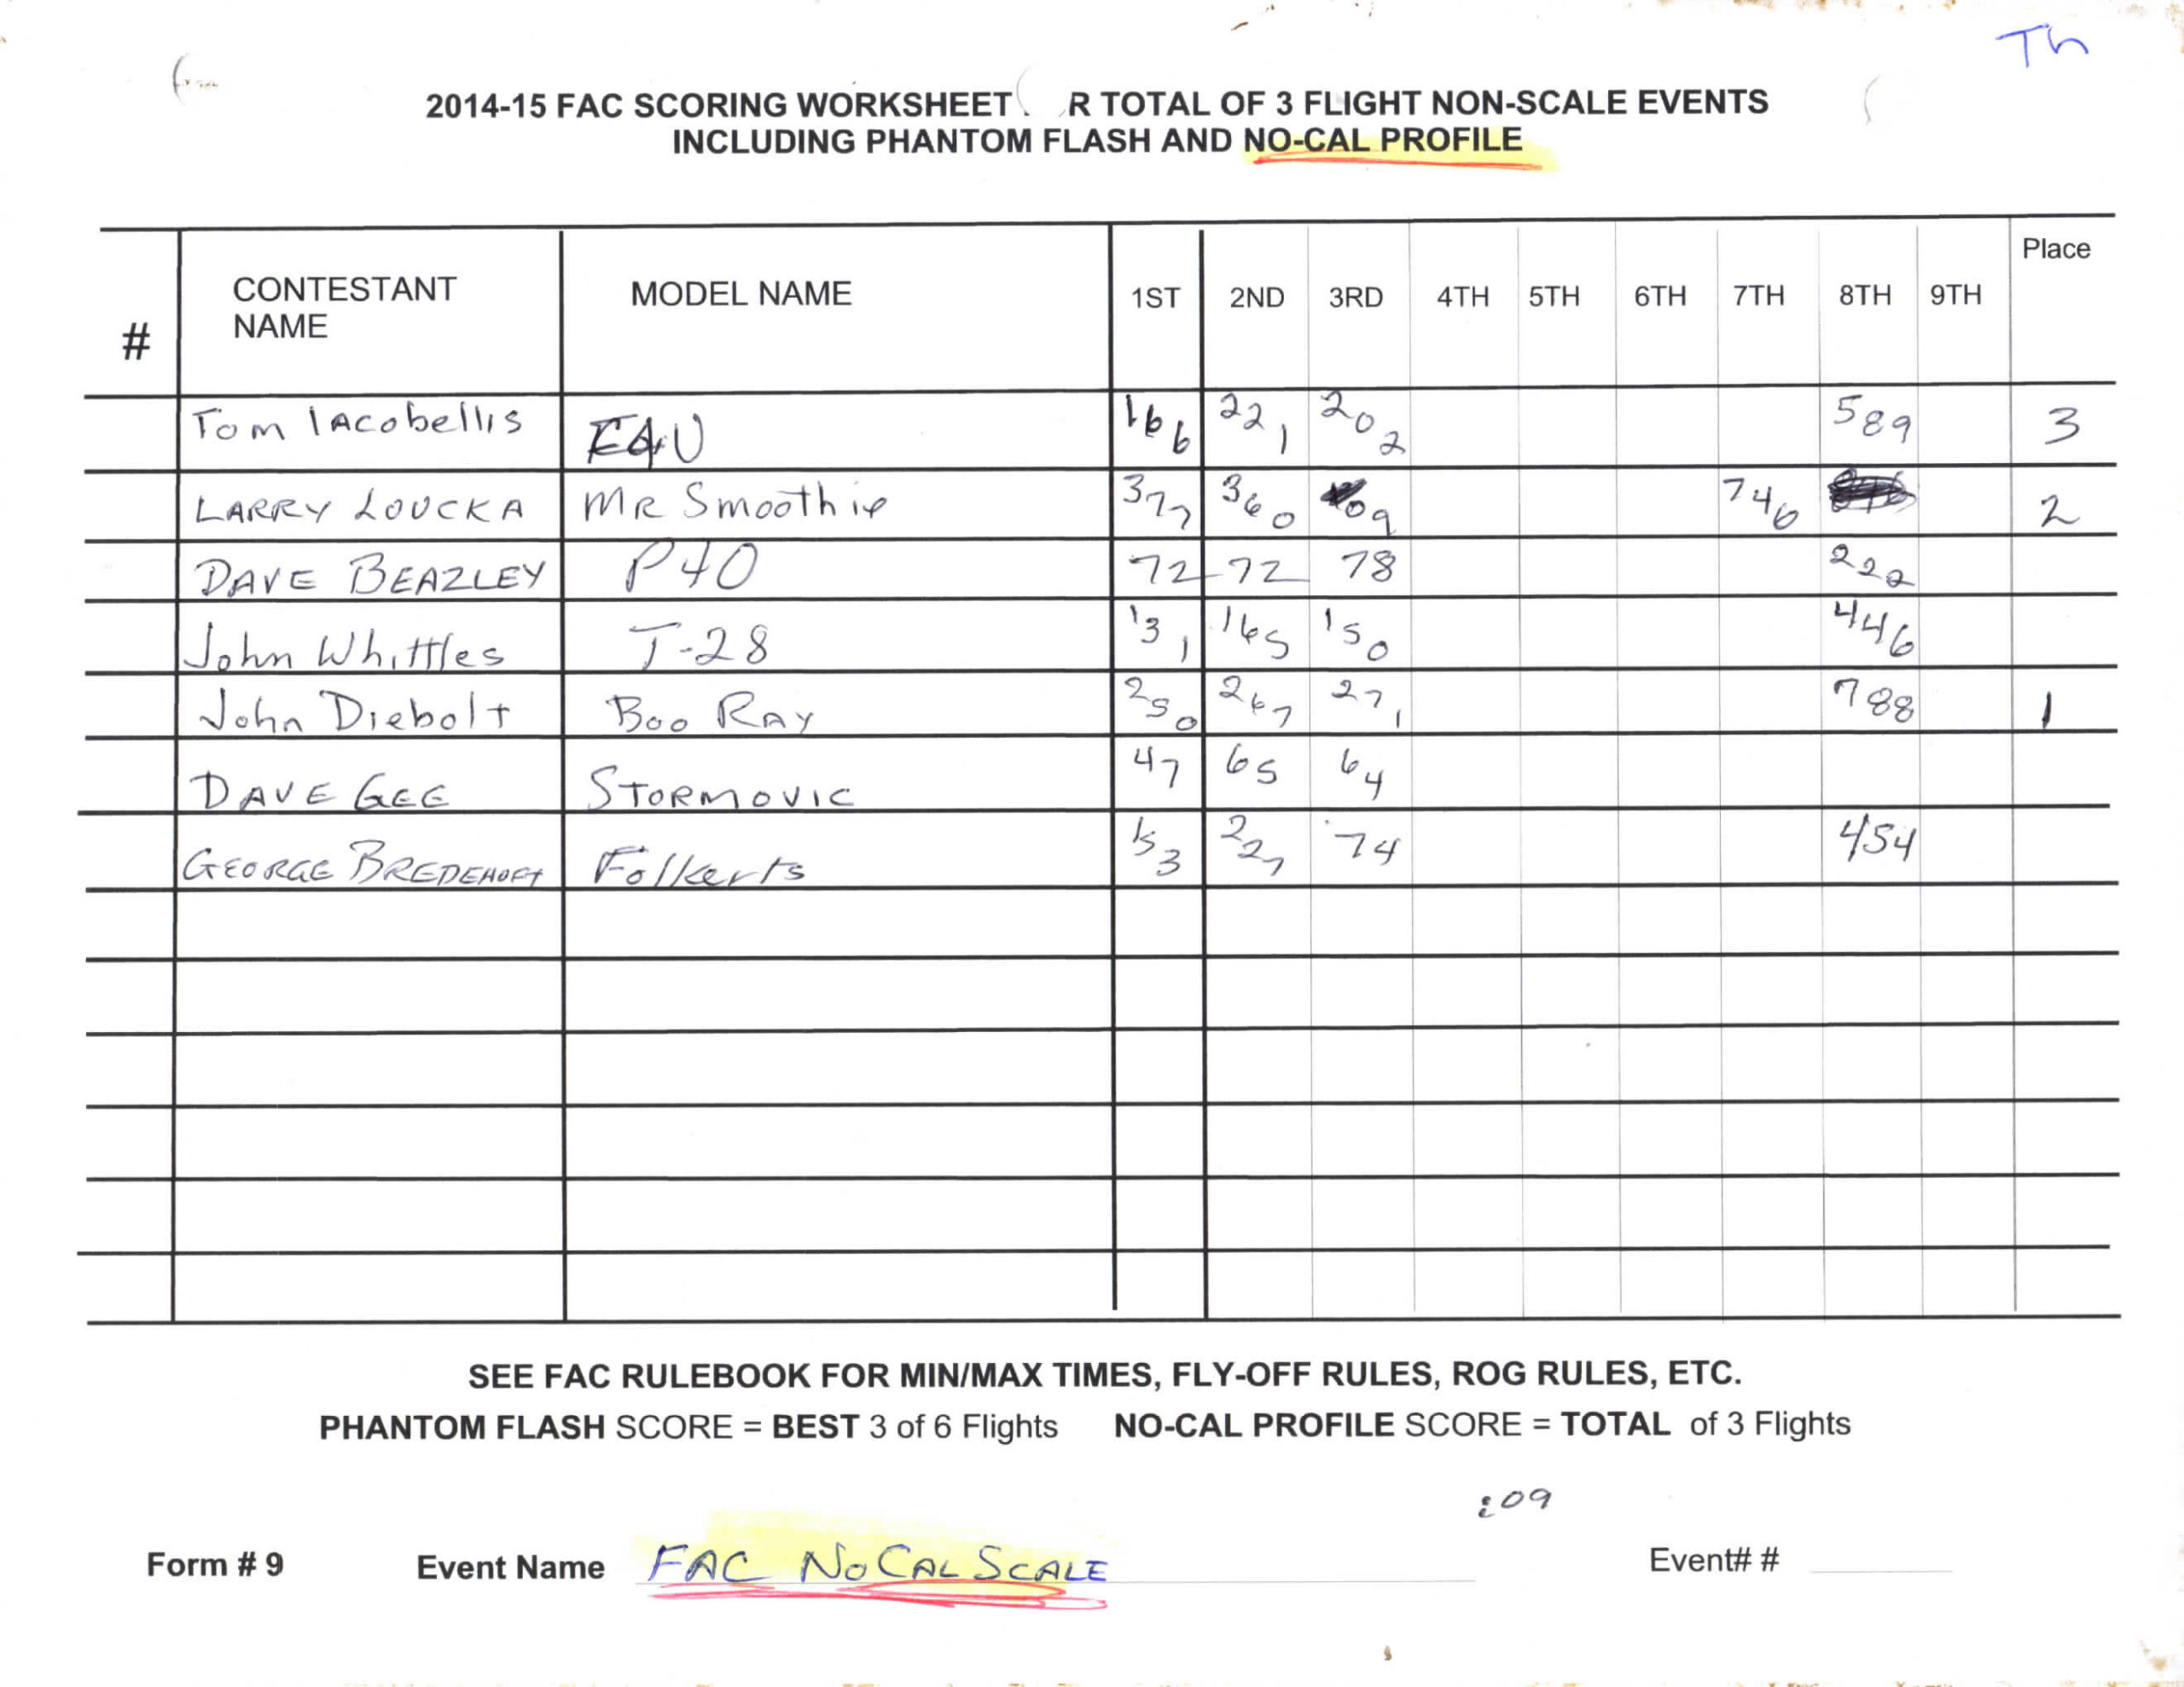 Th
2014-15 FAC SCORING WORKSHEET R TOTAL OF 3 FLIGHT NON-SCALE EVENTS
INCLUDING PHANTOM FLASH AND NO-CAL PROFILE
# CONTESTANT NAME MODEL NAME 1ST 2ND 3RD 4TH 5TH 6TH 7TH 8TH 9TH Place
Tom Iacobellis F4U 166 221 202 589 3
LARRY LOUCKA MR Smoothie 377 360 09 746 2
DAVE BEAZLEY P40 72 72 78 222
John Whittles T-28 131 165 150 446
John Diebolt Boo RAY 250 267 271 788 1
DAVE GEE STORMOVIC 47 65 64
GEORGE BREDEHOFT Folkerts 153 227 74 454
SEE FAC RULEBOOK FOR MIN/MAX TIMES, FLY-OFF RULES, ROG RULES, ETC.
PHANTOM FLASH SCORE = BEST 3 of 6 Flights NO-CAL PROFILE SCORE = TOTAL of 3 Flights
:09
Form # 9 Event Name FAC NOCAL SCALE Event# #